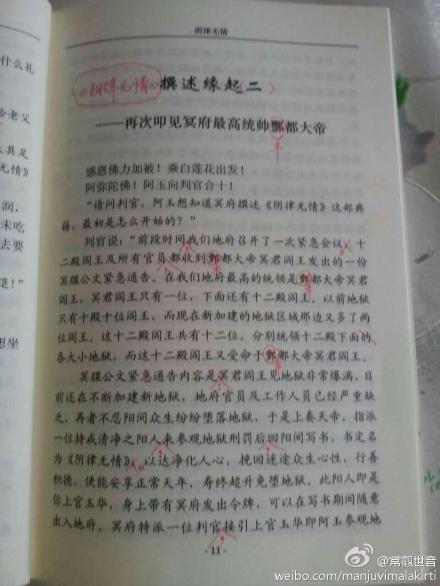 阴律无情
什么礼
给老父
水具足
无情》
润，
未吃
去要
退！"
想坐
《阴律无情》撰述缘起（二）
——再次叩见冥府最高统帅酆都大帝
感恩佛力加被！乘白莲花出发！
阿弥陀佛！阿玉向判官合十！
"请问判官，阿玉想知道冥府撰述《阴律无情》这部典
籍，最初是怎么开始的？"
判官说："前段时间我们地府召开了一次紧急会议，十
二殿阎王及所有官员都收到酆都大帝冥君阎王发出的一份
冥牒公文紧急通告。在我们地府最高的统领是酆都大帝冥君
阎王，冥君阎王只有一位，下面还有十二殿阎王。以前地狱
只有十殿十位阎王，而现在新加建的地狱区域那边又多了两
位阎王。这十二殿阎王共有十二位，分别统领十二殿下面的
各大小地狱，而这十二殿阎王又受命于酆都大帝冥君阎王。
冥牒公文紧急通告内容是冥君阎王见地狱非常爆满，目
前还在不断加建新地狱，地府官员及工作人员已经严重缺
乏，再者不忍阳间众生纷纷堕落地狱，于是上奏天帝，指派
一位持戒清净之阳人来参观地狱刑罚后回阳间写书，书定名
为《阴律无情》，以达净化人心，挽回迷途众生心性，行善
积德，使能安享正常天年，寿终超升免堕地狱。此阳人即是
你上官玉华，身上带有冥府发出令牌，可以在写书期间随意
出入地府。冥府特派一位判官接引上官玉华即阿玉参观地
11
@常靓世音
weibo.com/manjuvimalakirti